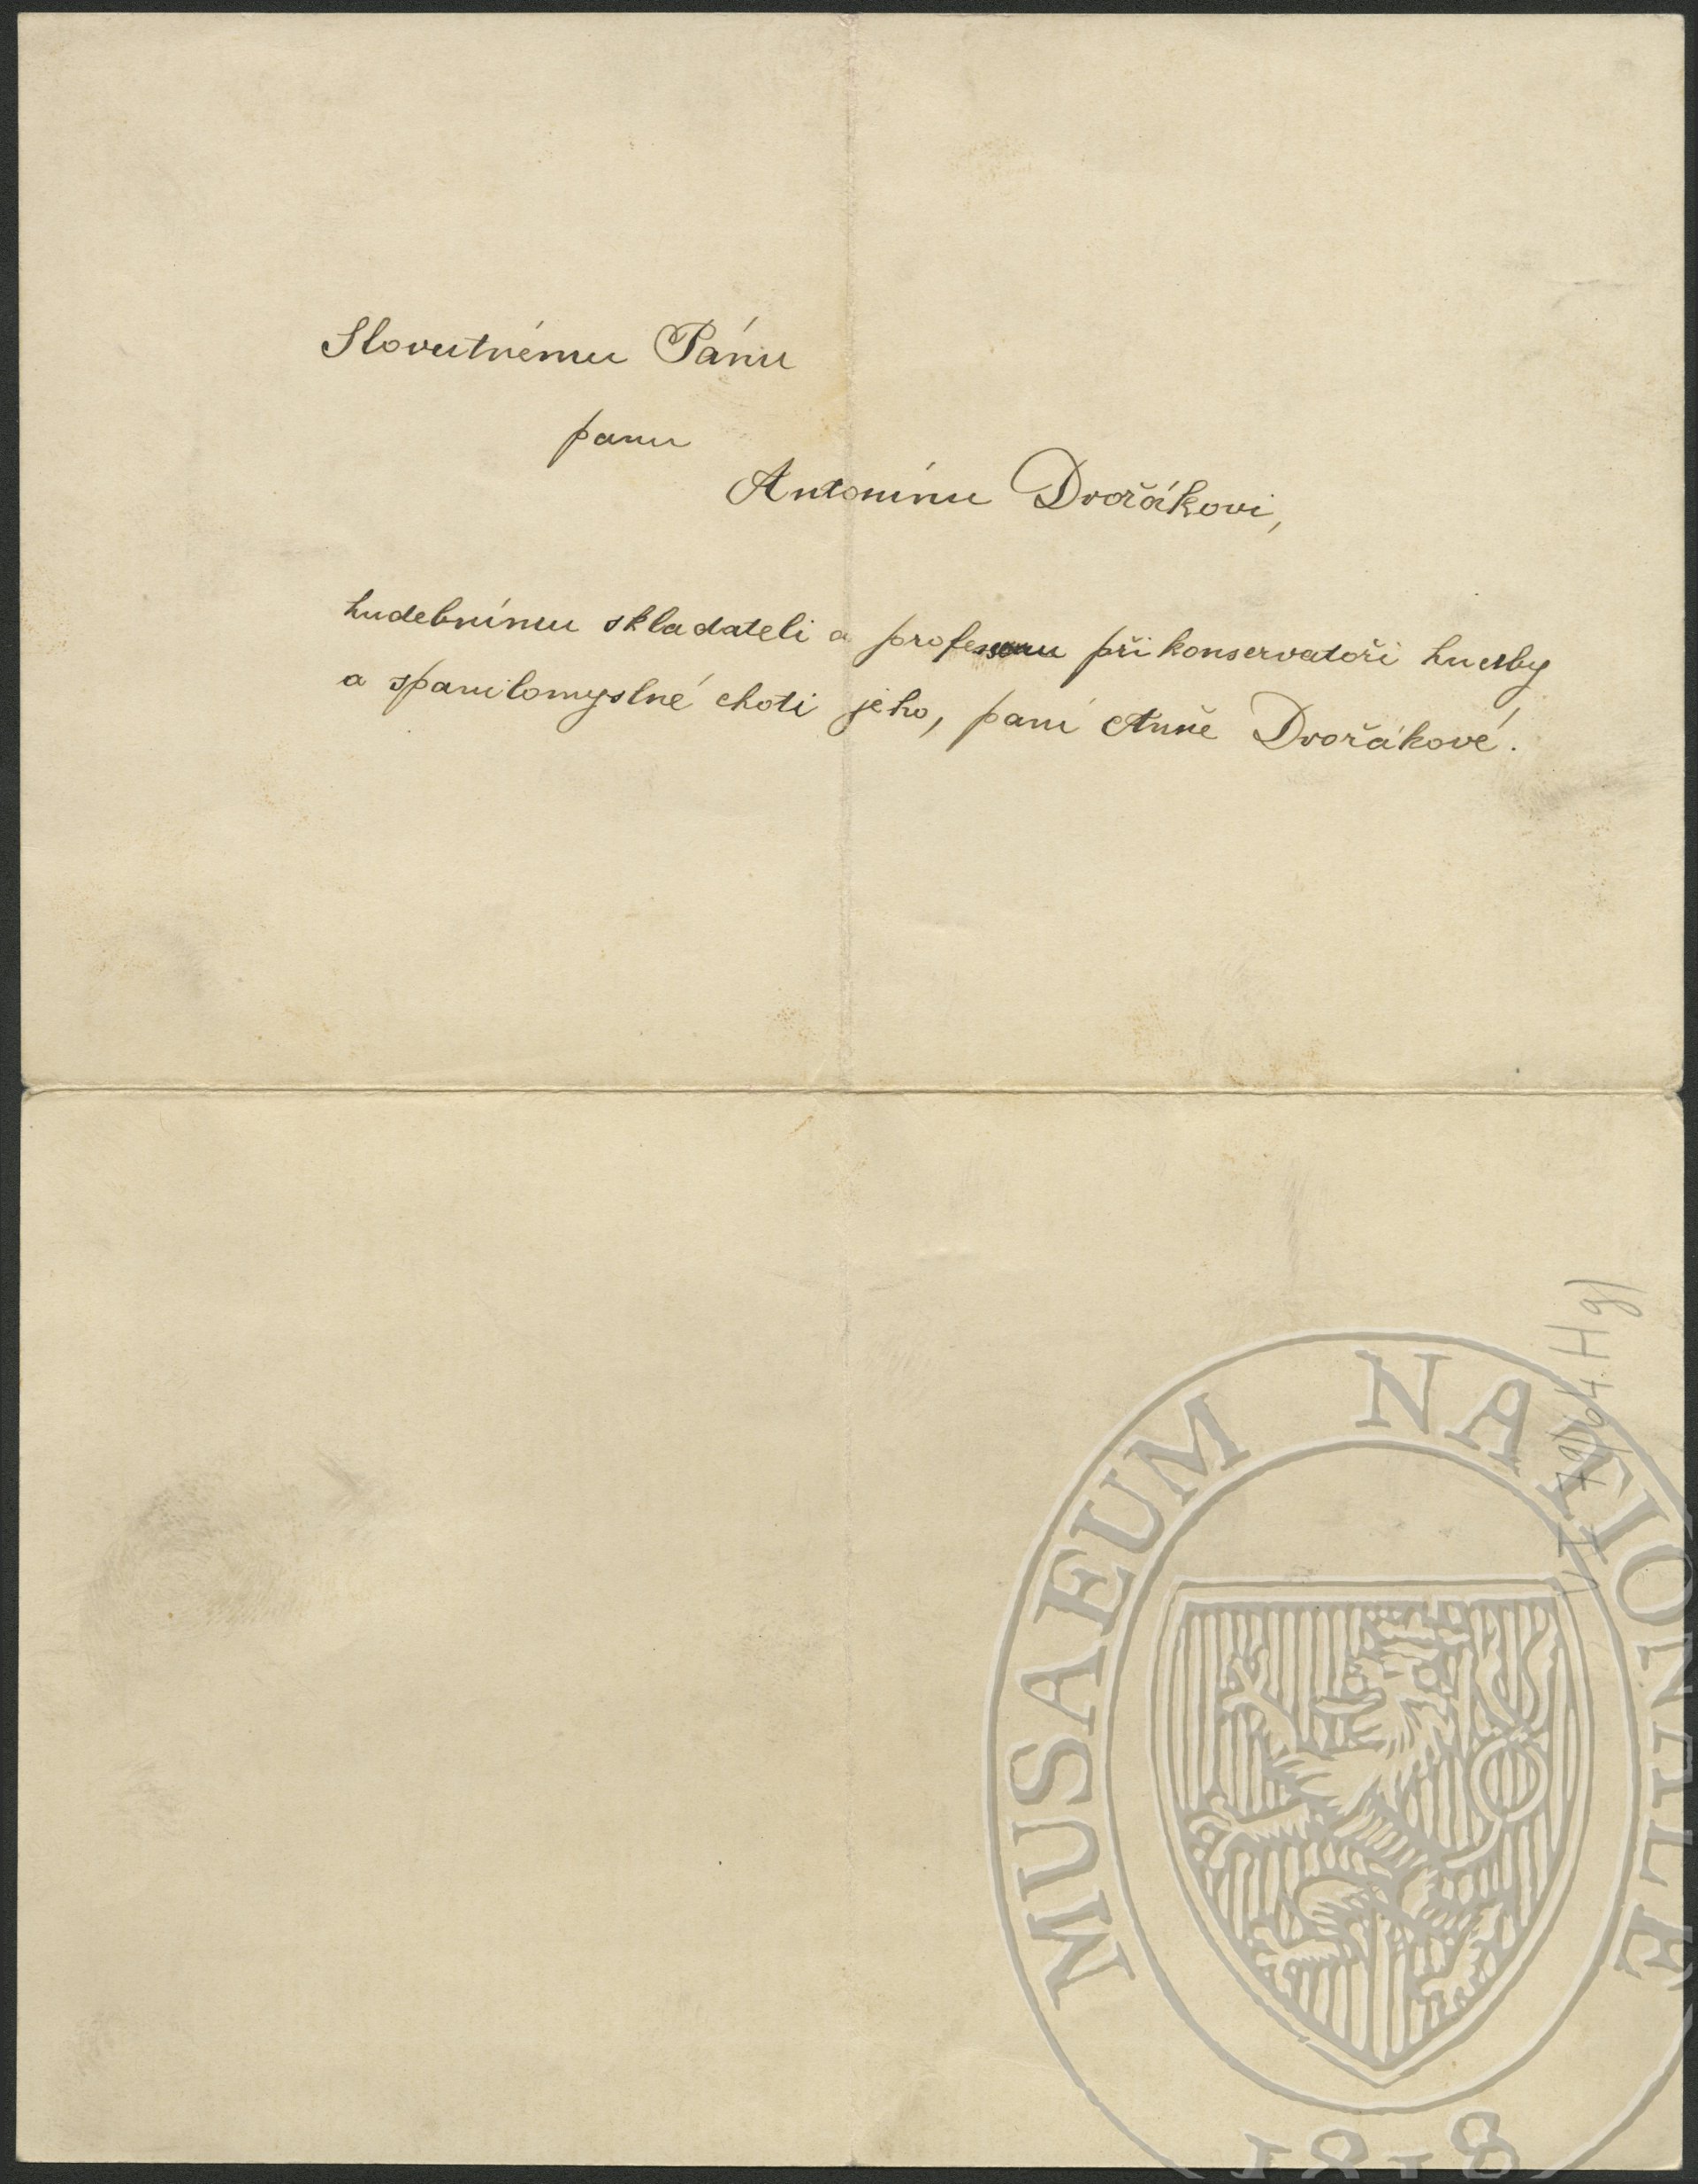 Slovutnému Pánu
panu
Antonínu Dvořákovi,
hudebnímu skladateli a professoru při konservatoři hudby
a spanilomyslné choti jeho, paní Anně Dvořákové.
MUSAEUM NATIONALE
1818